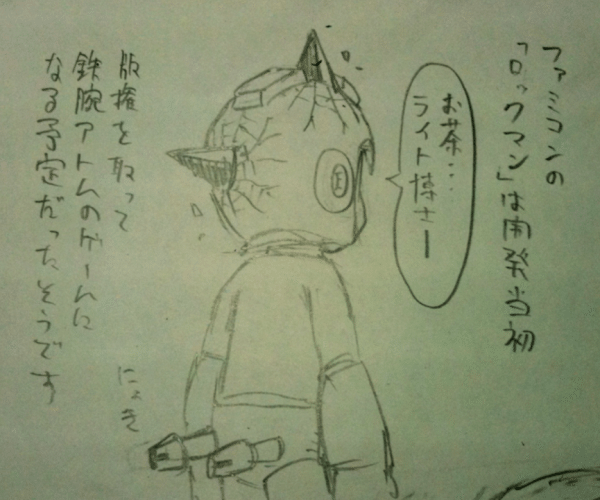 ファミコンの
「ロックマン」は開発当初
お茶…
ライト博士ー
版権を取って
鉄腕アトムのゲームに
なる予定だったそうです
にょき